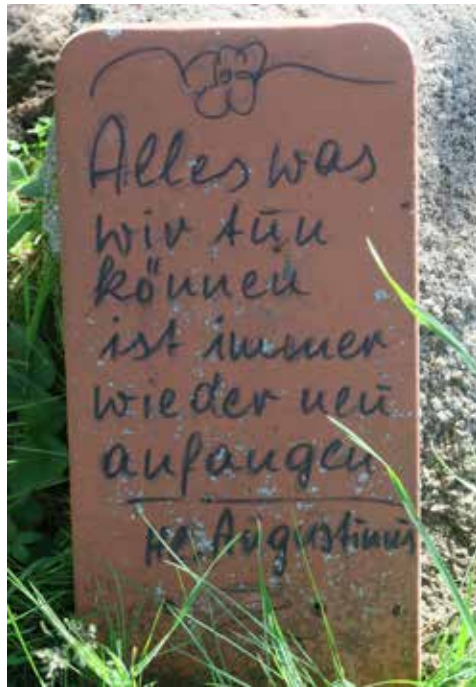 Alles was
wir tun
können
ist immer
wieder neu
anfangen
Hl. Augustinus